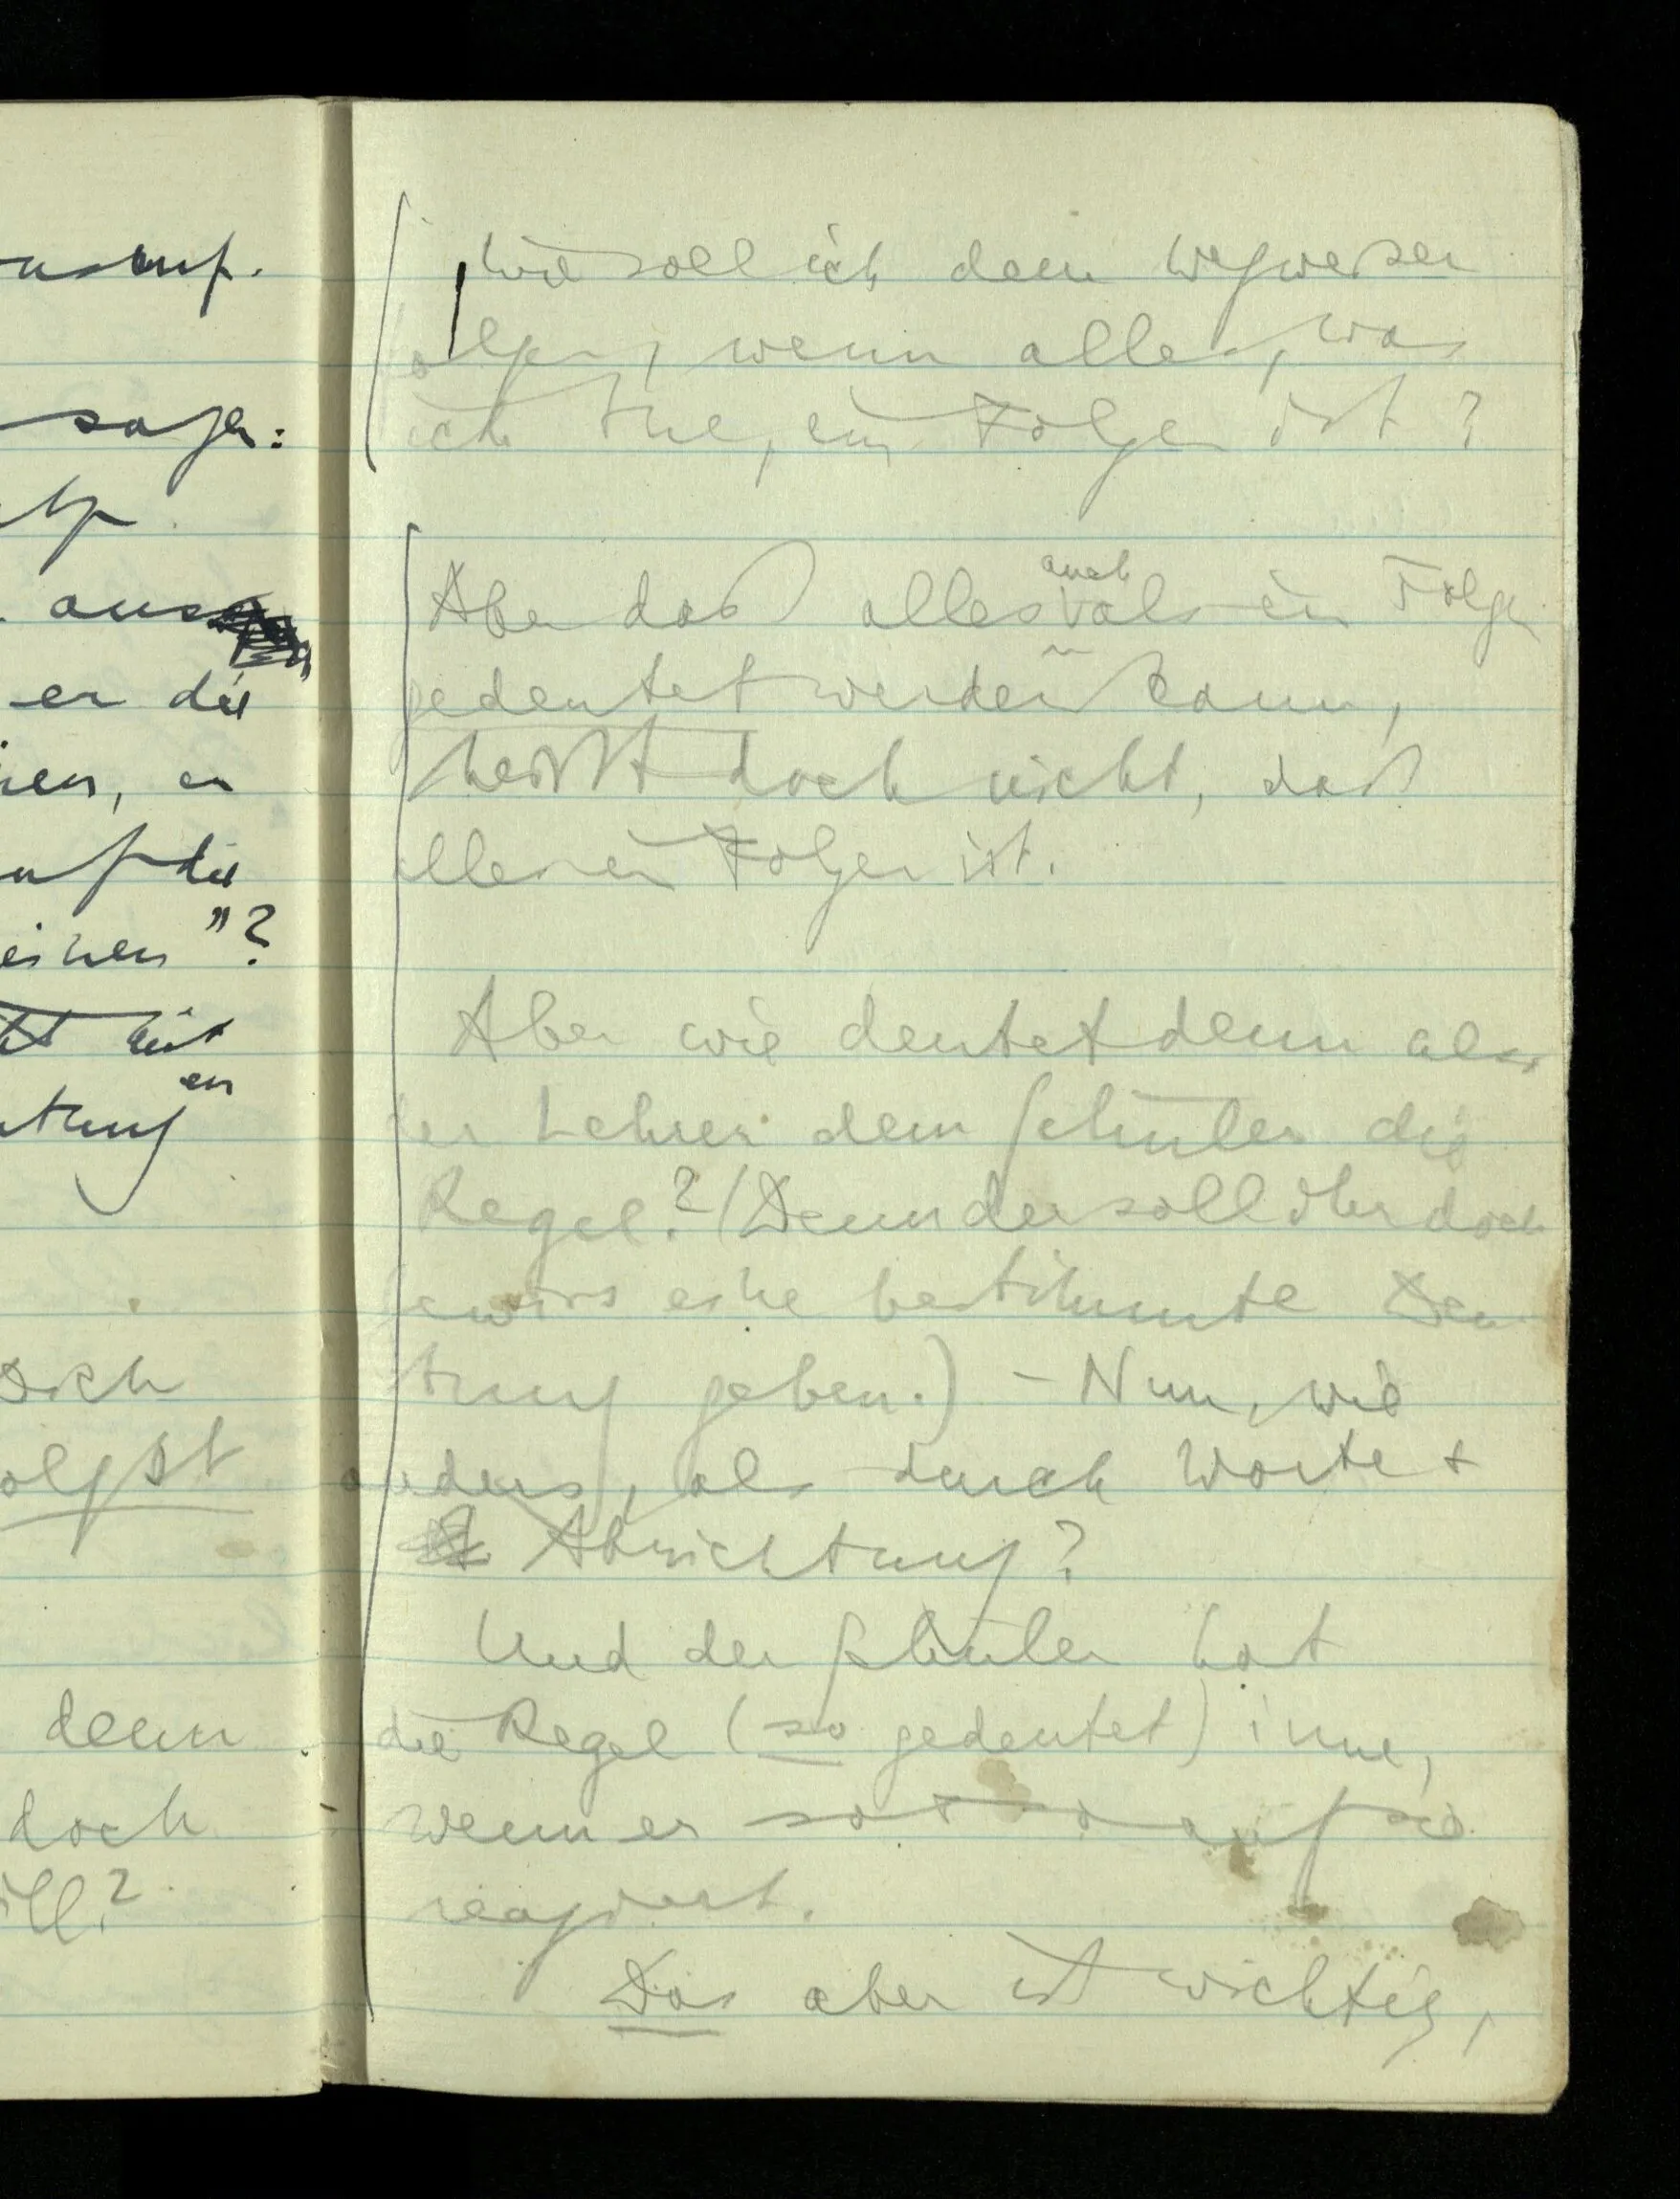 ausruf.
sagen:
aus
er die
er
auf die
einen"?
mit
en
Dich
folgst
denn
doch
will?
Wie soll ich dem Wegweiser
folgen, wenn alles, was
ich tue, ein Folgen ist?
auch
Aber daß alles als ein Folgen
gedeutet werden kann,
heißt doch nicht, daß
alles ein Folgen ist.
Aber wie deutet denn also
der Lehrer dem Schüler die
Regel? (Denn der soll ihr doch
gewiss eine bestimmte Deu
tung geben.) – Nun, wie
anders, als durch Worte +
Abrichtung?
Und der Schüler hat
die Regel (so gedeutet) inne,
wenn er so + so auf sie
reagiert.
Das aber ist wichtig,